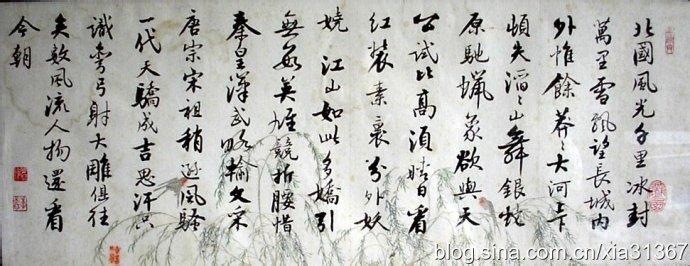 北國風光千里冰封
萬里雪飄望長城內
外惟餘莽々大河上下
頓失滔々山舞銀蛇
原馳蠟象欲與天
公試比高須晴日看
紅裝素裹分外妖
嬈 江山如此多嬌引
無數英雄競折腰惜
秦皇漢武略輸文采
唐宗宋祖稍遜風騷
一代天驕成吉思汗只
識彎弓射大雕俱往
矣數風流人物還看
今朝
blog.sina.com.cn/xia31367